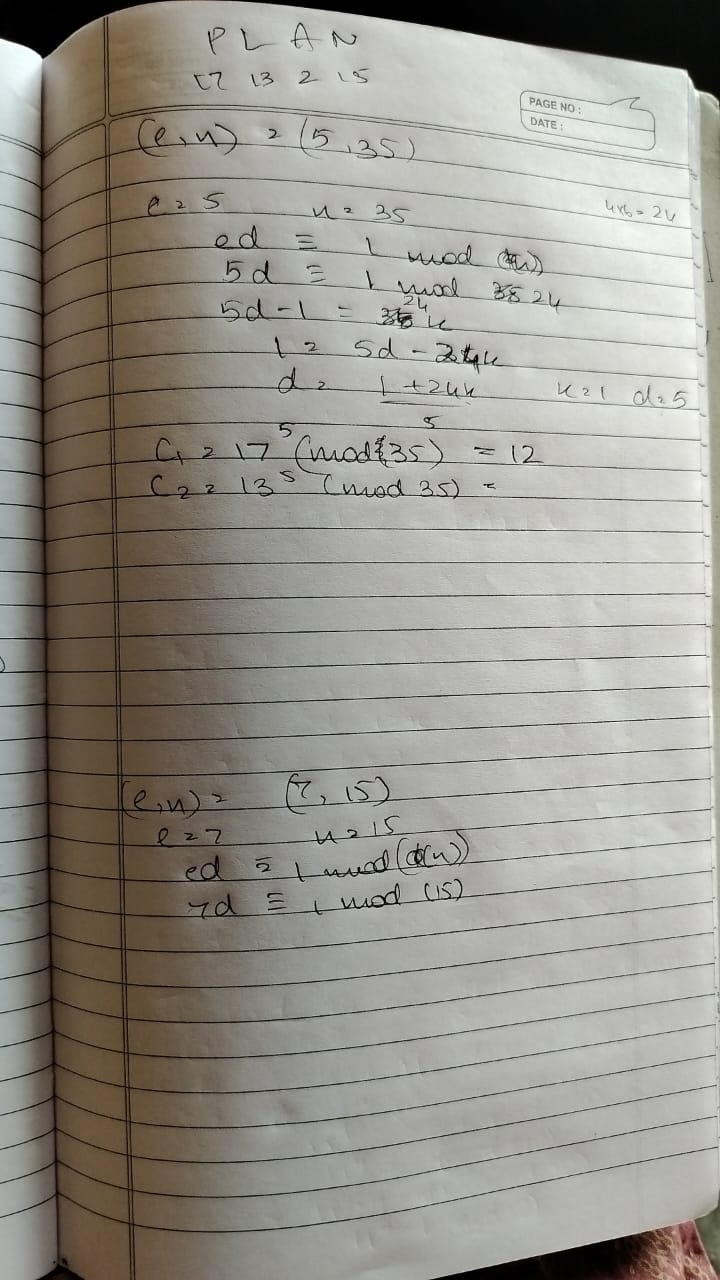 P L A N
17 13 2 15
PAGE NO :
DATE :
(e, n) = (5, 35)
e = 5 n = 35 4x6 = 24
ed ≡ 1 mod (ϕ(n))
5d ≡ 1 mod 24
5d - 1 = 24 k
1 = 5d - 24k
d = 1 + 24k / 5 k = 1 d = 5
C₁ = 17⁵ (mod 35) = 12
C₂ = 13⁵ (mod 35) =
(e, n) = (7, 15)
e = 7 n = 15
ed ≡ 1 mod (ϕ(n))
7d ≡ 1 mod (15)